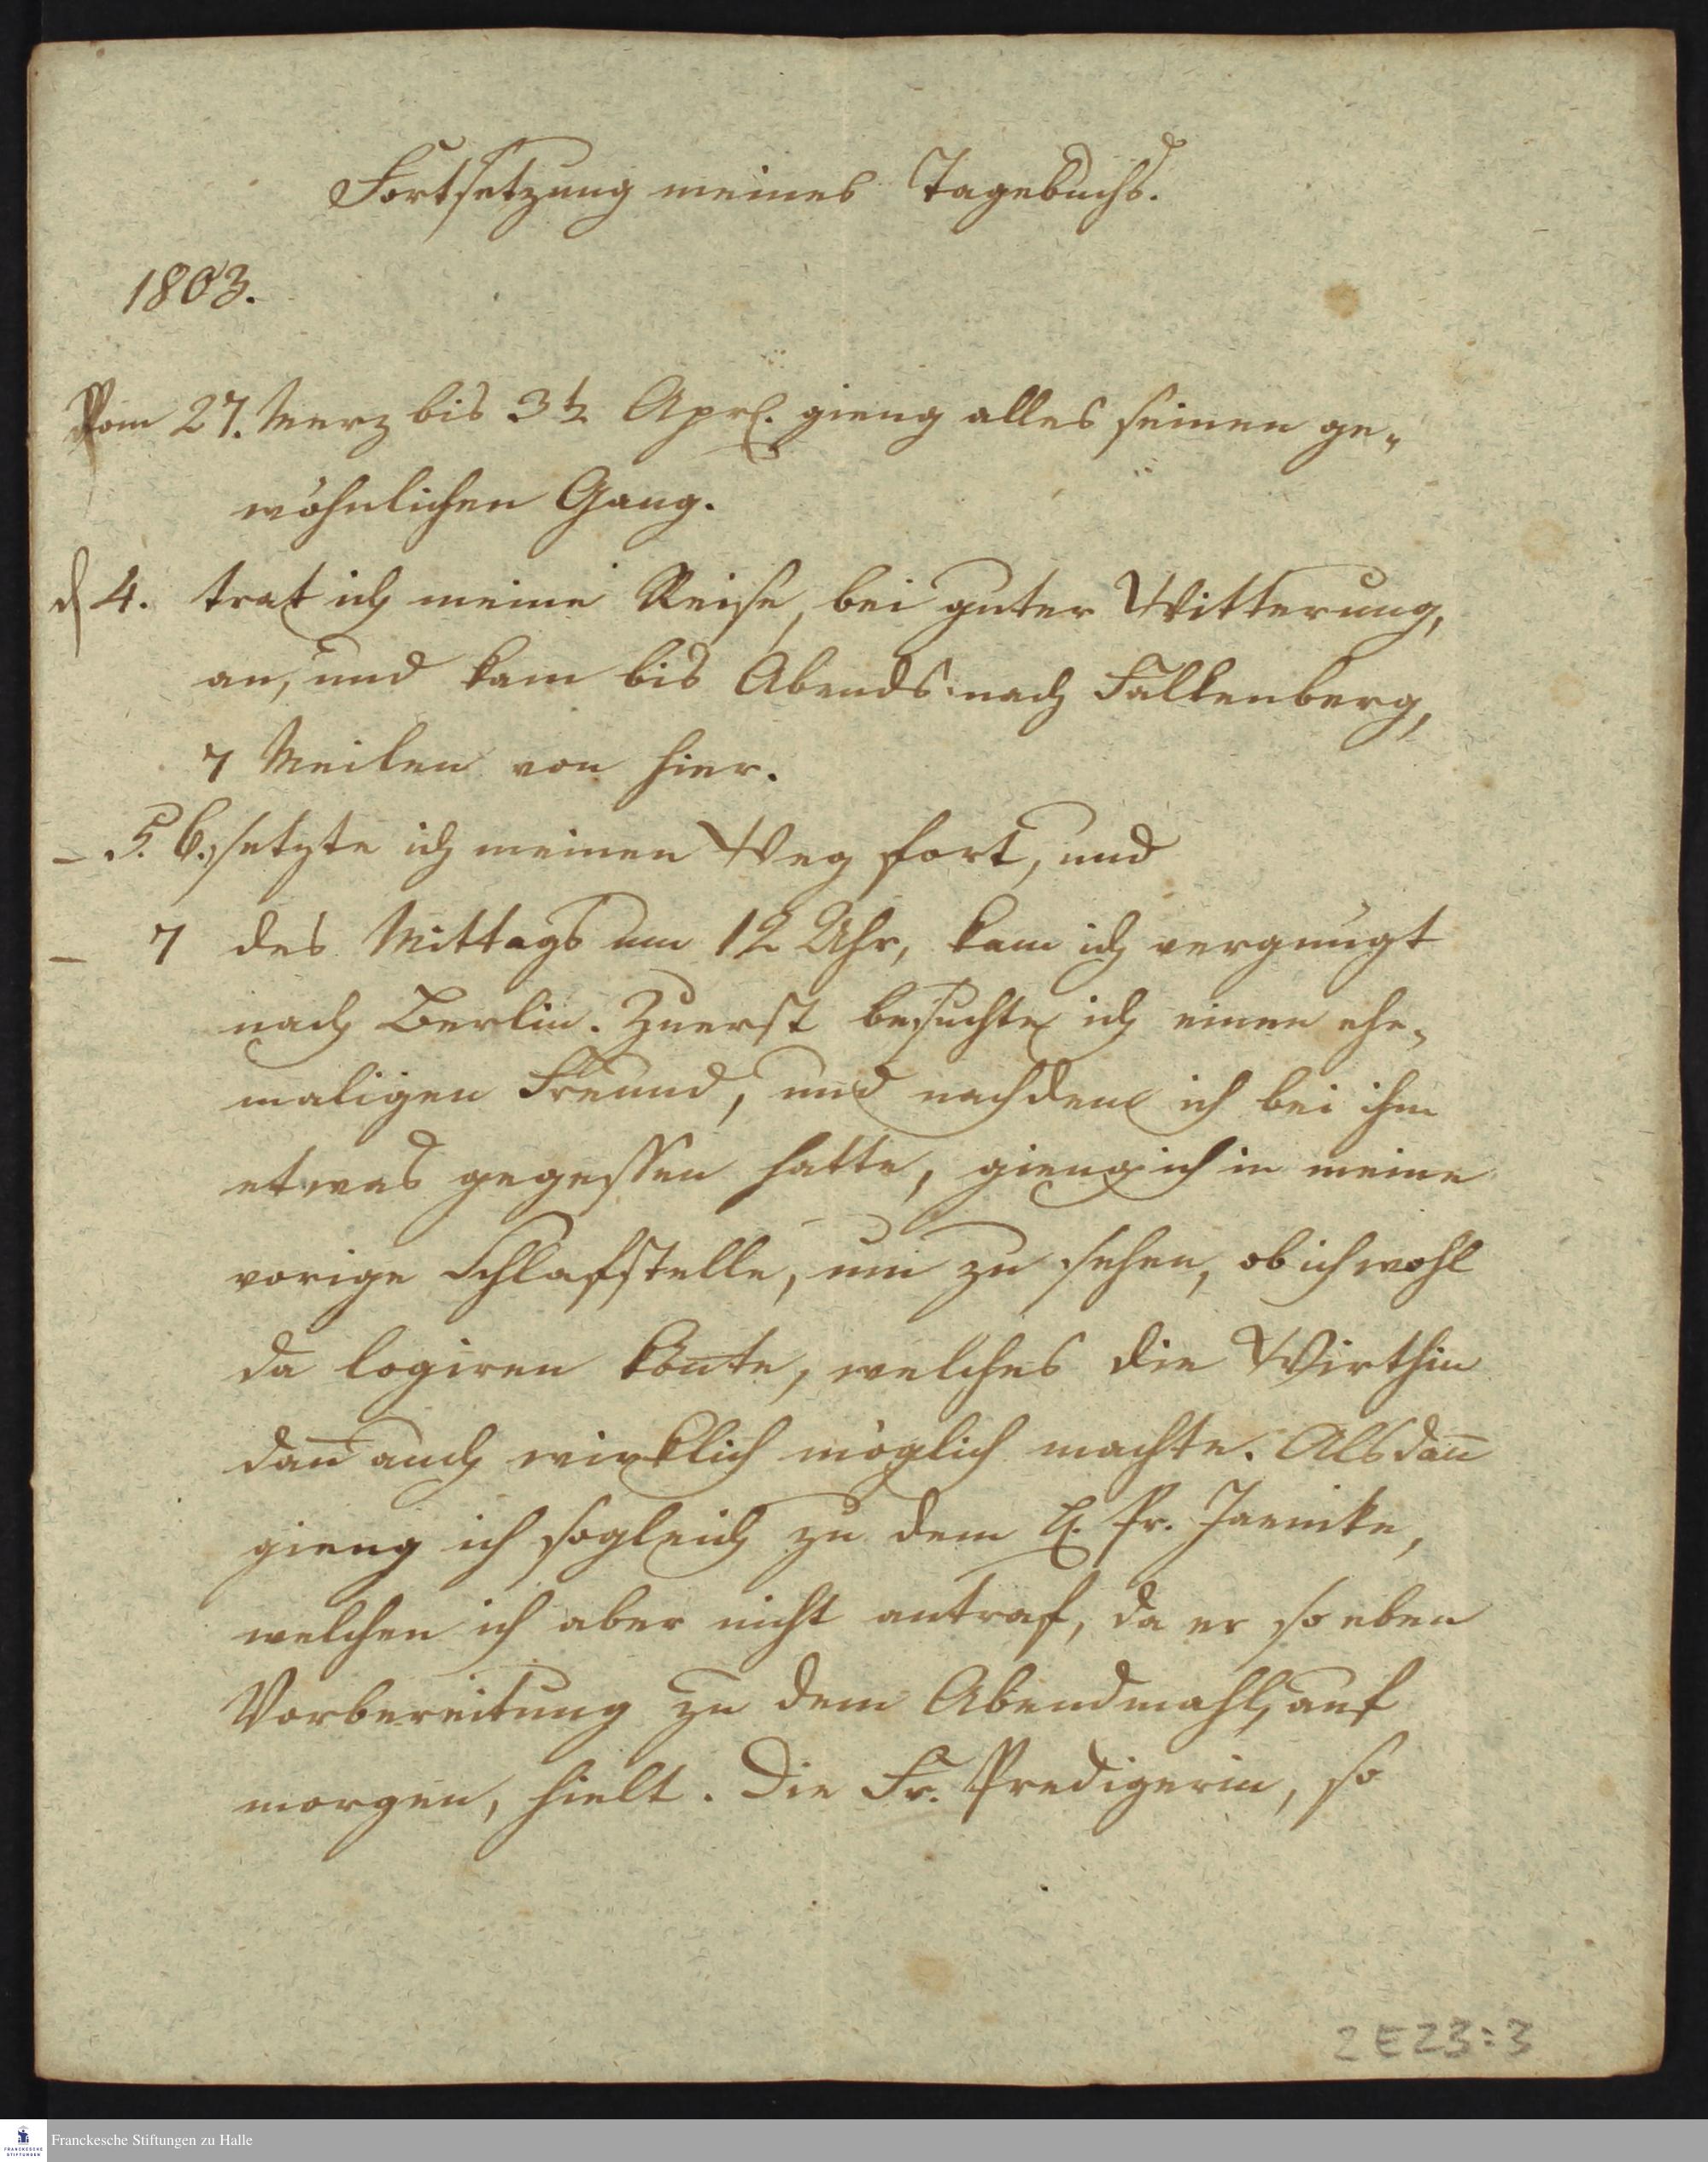 Fortsetzung meines Tagebuchs.
1803.
Vom 27. Merz bis 3t Aprl. gieng alles seinen ge-
wöhnlichen Gang.
d 4. trat ich meine Reise, bei guter Witterung,
an, und kam bis Abends nach Falkenberg,
7 Meilen von hier.
– 5. 6. setzte ich meinen Weg fort, und
– 7 des Mittags um 12 Uhr, kam ich vergnügt
nach Berlin. Zuerst besuchte ich einen ehe-
maligen Freund, und nachdem ich bei ihm
etwas gegessen hatte, gieng ich in meine
vorige Schlafstelle, um zu sehen, ob ich wohl
da logiren kon̄te, welches die Wirthin
dan̄ auch wirklich möglich machte. Alsdan̄
gieng ich sogleich zu dem H. Pr. Jaenicke,
welchen ich aber nicht antraf, da er so eben
Vorbereitung zu dem Abendmahl, auf
morgen, hielt. Die Fr. Predigerin, so
2 E 23 : 3
Franckesche Stiftungen zu Halle